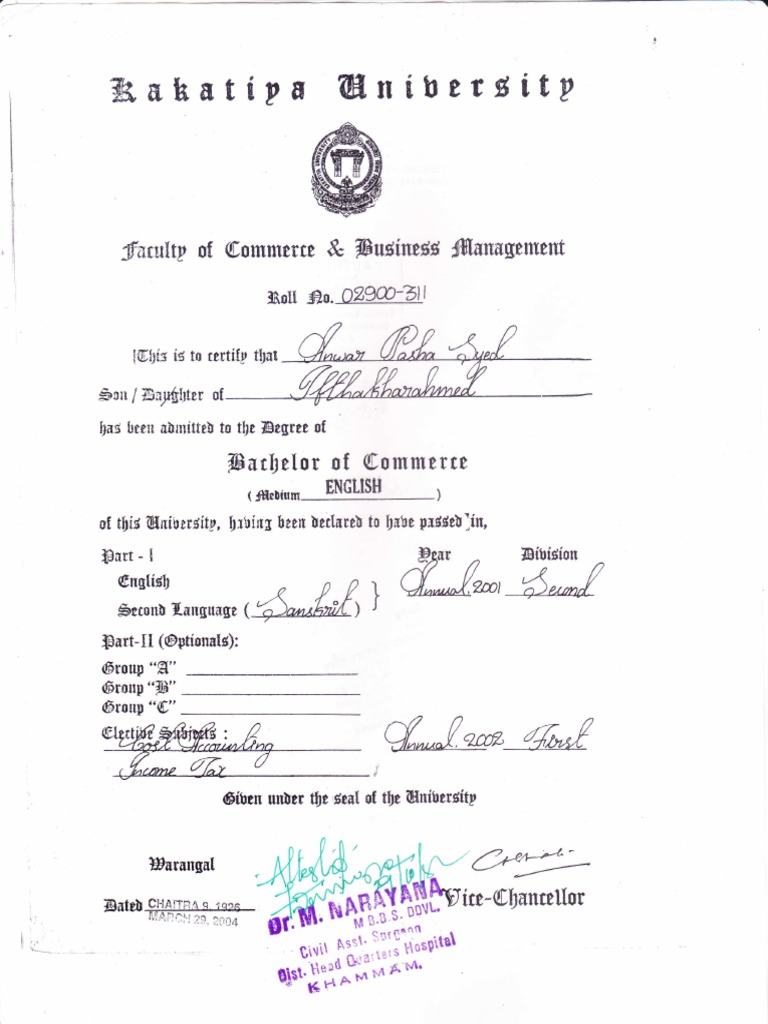 Kakatiya University
Faculty of Commerce & Business Management
Roll No. 02900-311
This is to certify that Anwar Pasha Syed
Son / Daughter of Iffthakharahmed
has been admitted to the Degree of
Bachelor of Commerce
( Medium ENGLISH )
of this University, having been declared to have passed in,
Part - I Year Division
English
Second Language ( Sanskrit ) } Annual. 2001 Second
Part-II (Optionals):
Group "A"
Group "B"
Group "C"
Elective Subjects :
Cost Accounting Annual. 2002 First
Income Tax
Given under the seal of the University
Warangal
Attested
Dated CHAITRA 9, 1926
MARCH 29, 2004
Vice-Chancellor
Dr. M. NARAYANA
M B.B.S. DDVL.
Civil Asst. Surgeon
Dist. Head Quarters Hospital
KHAMMAM.